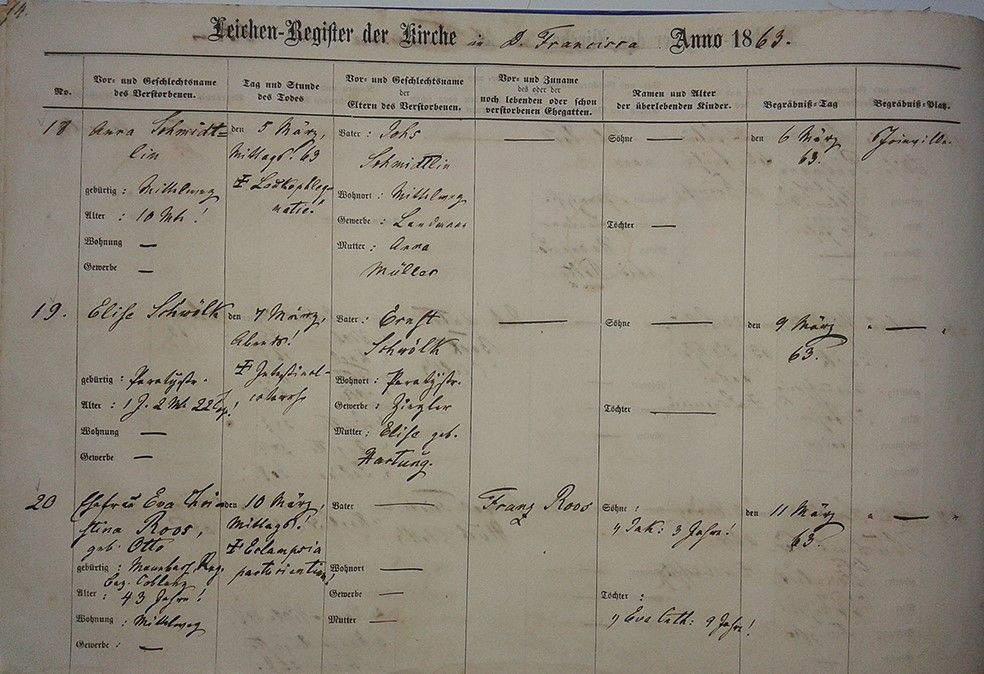 14.
Leichen-Register der Kirche in D. Francisca Anno 1863.
No.
Vor- und Geschlechtsname
des Verstorbenen.
Tag und Stunde
des Todes
Vor- und Geschlechtsname
der
Eltern des Verstorbenen.
Vor- und Zuname
des oder der
noch lebenden oder schon
verstorbenen Ehegatten.
Namen und Alter
der überlebenden Kinder.
Begräbniß-Tag
Begräbniß-Platz.
18
Anna Schmidt=
lin
gebürtig : Mittelweg
Alter : 10 Mt.!
Wohnung —
Gewerbe —
den 5 März,
Mittags! 63
Vater : Johs
Schmidtlin
Wohnort : Mittelweg
Gewerbe : Landmann
Mutter : Anna
Müller
—
Söhne —
Töchter —
den 6 März
63.
Joinville.
19.
Elise Schwölk
gebürtig :
Alter : 1 J. 2 Mt. 22 Tag!
Wohnung —
Gewerbe —
den 7 März,
Abends!
Vater : Ernst
Schwölk
Wohnort :
Gewerbe : Ziegler
Mutter : Elise geb.
Hartung.
—
Söhne —
Töchter —
den 9 März
63.
" — "
20
Ehefrau Eva Chri=
stina Roos,
geb. Otto
gebürtig : Reg.
Bez. Coblenz
Alter : 43 Jahre!
Wohnung : Mittelweg
Gewerbe : —
den 10 März,
Mittags!
Eclampsia
parturientium!
Vater —
Wohnort —
Gewerbe —
Mutter —
Franz Roos
Söhne :
" Jak: 3 Jahre!
Töchter :
" Eva Cath: 9 Jahre!
den 11 März
63.
" — "